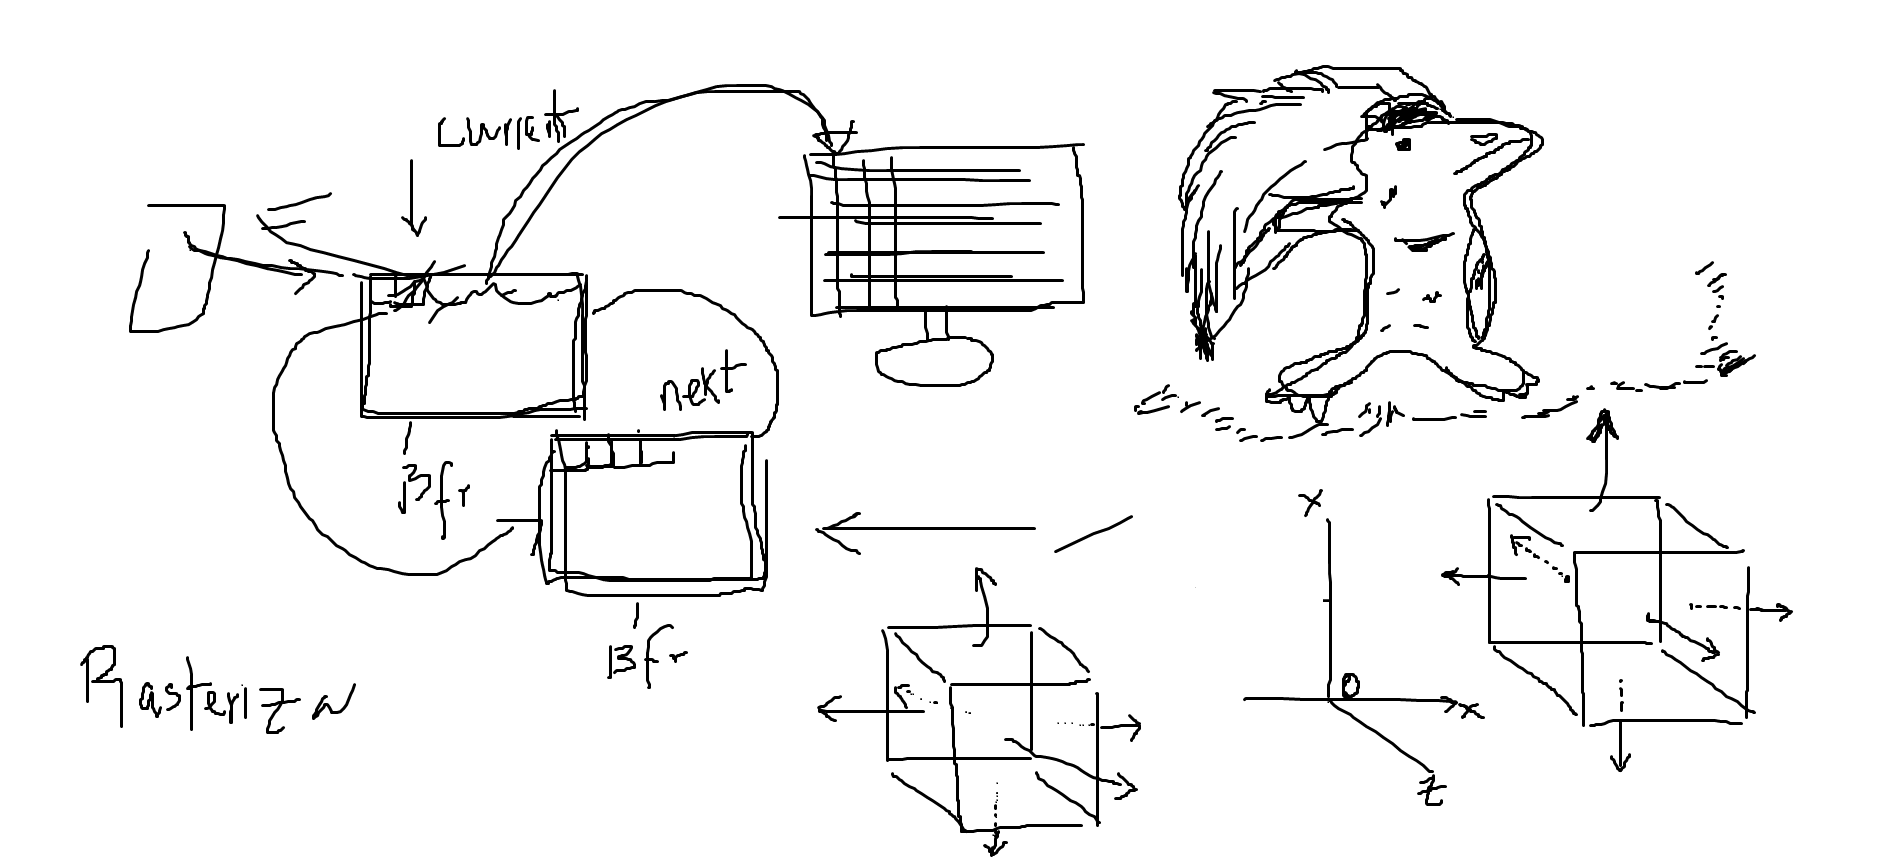 current
next
Bfr
Bfr
Rasteriza
x
0
x
z